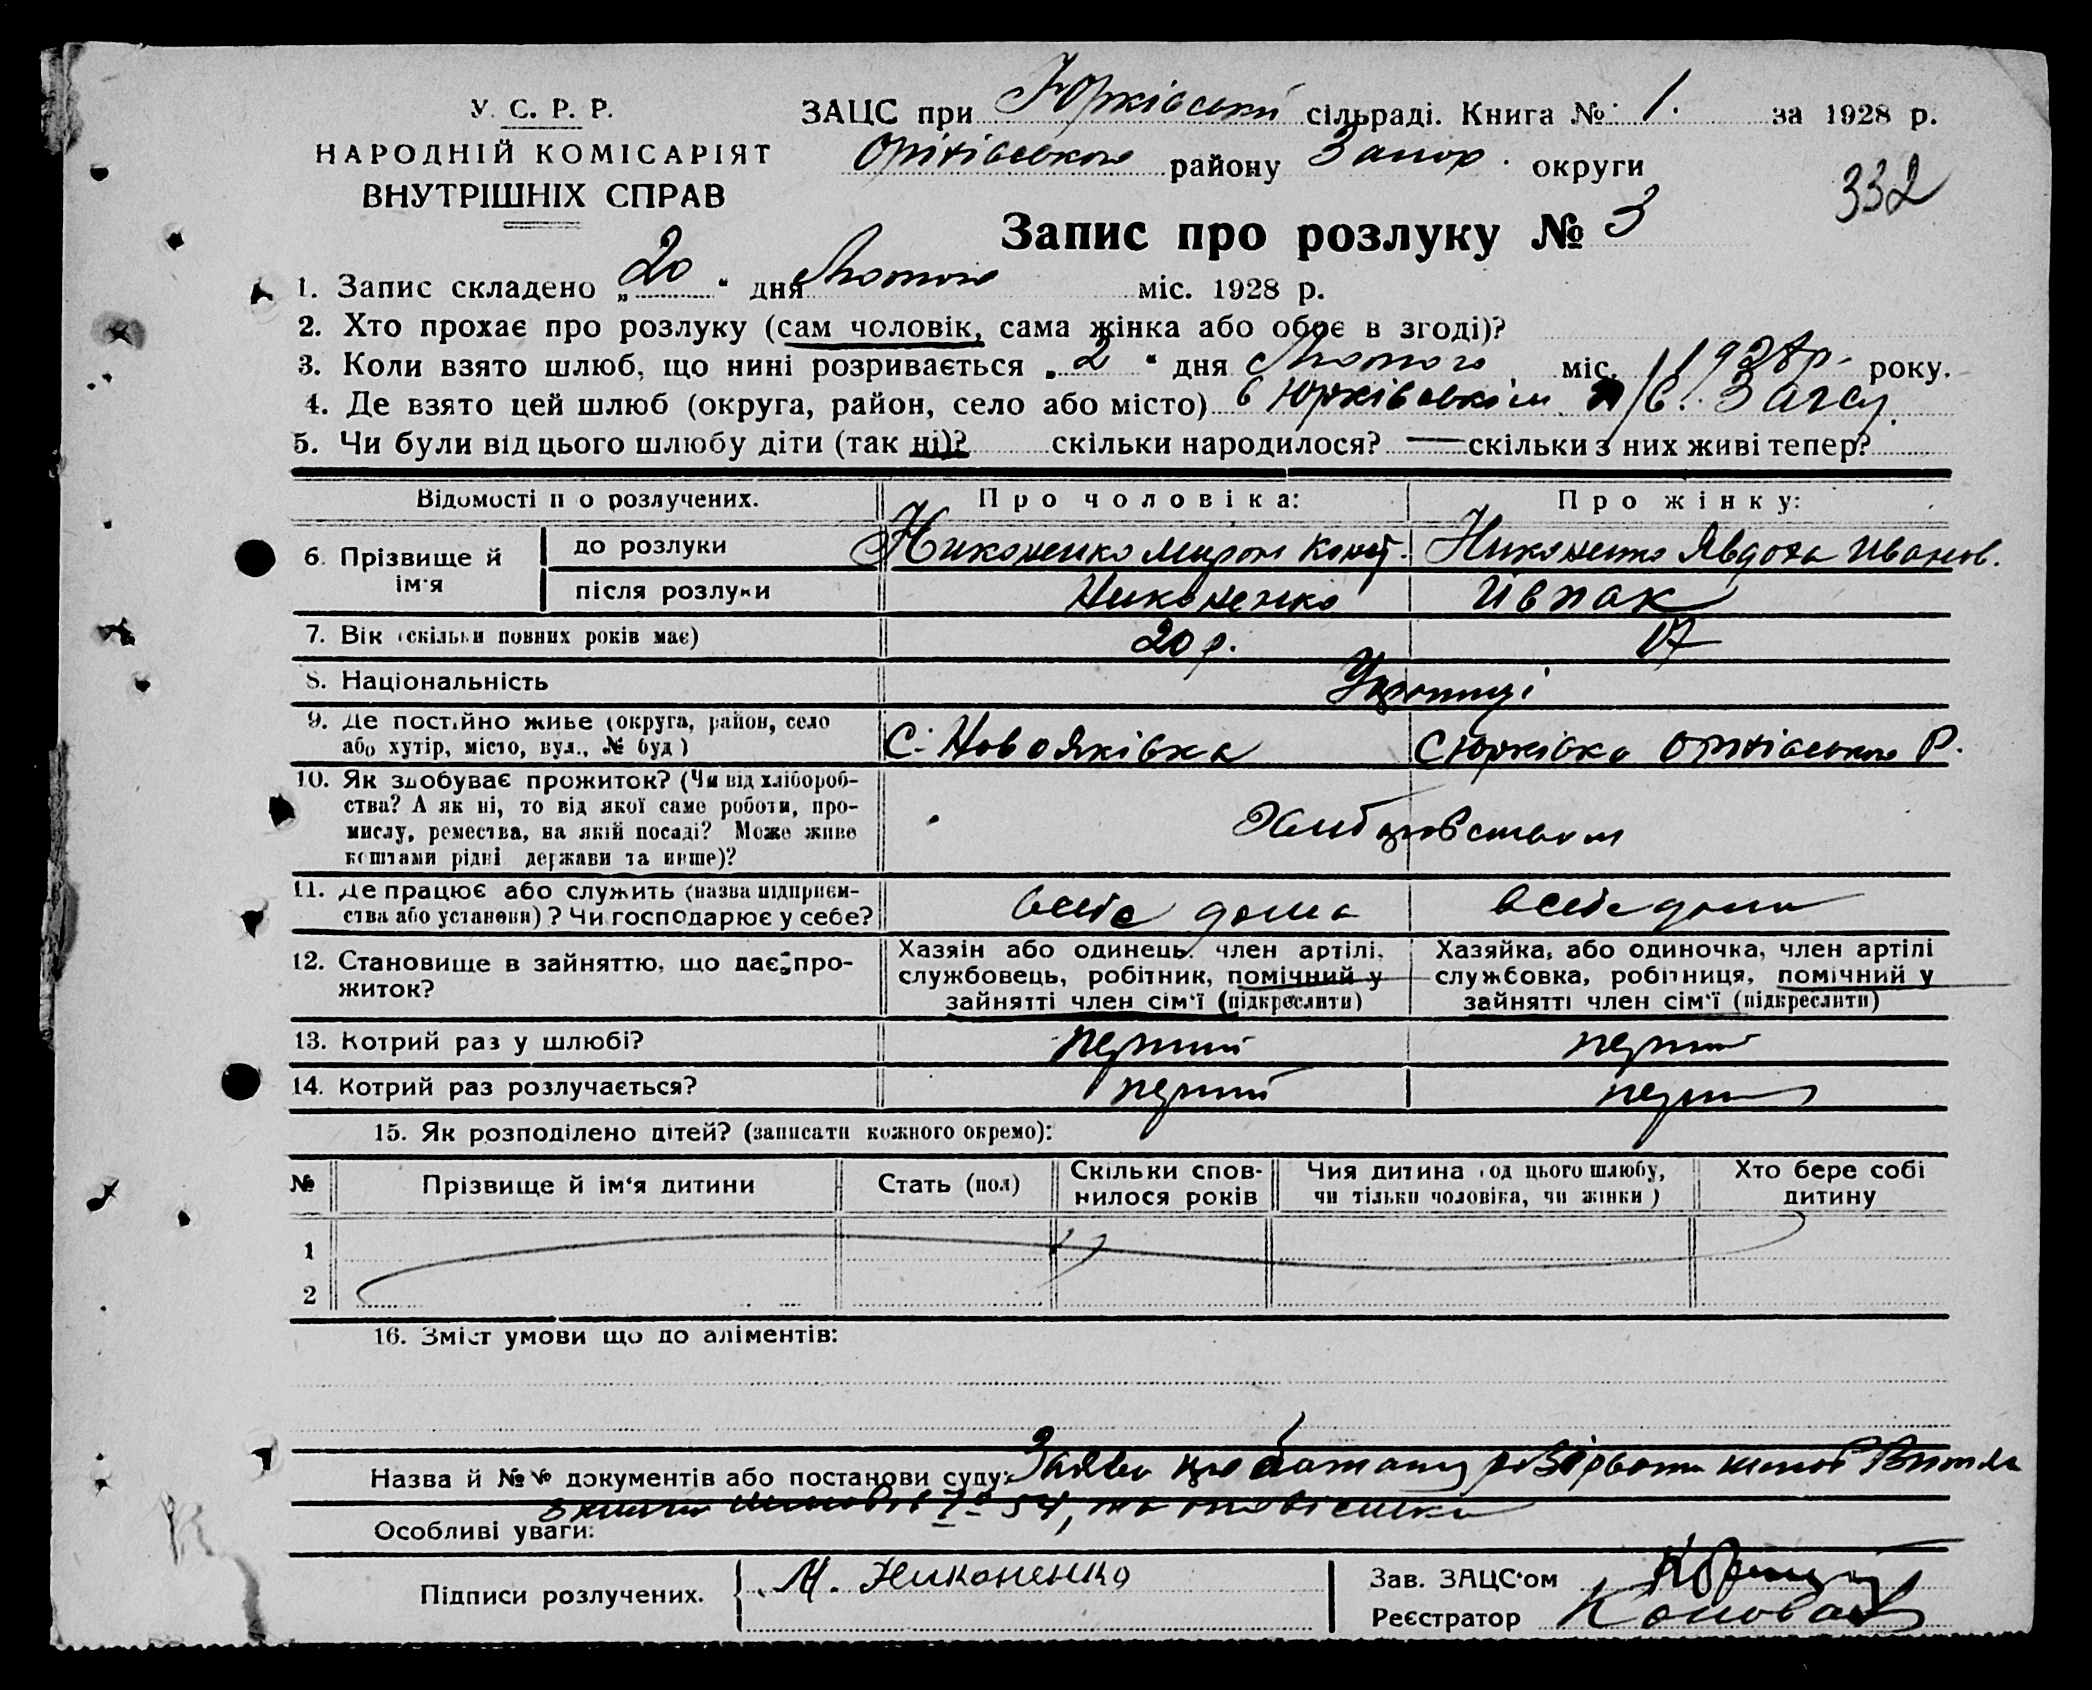 У. С. Р. Р.
НАРОДНІЙ КОМІСАРІЯТ
ВНУТРІШНІХ СПРАВ
ЗАЦС при Юрківській сільраді. Книга № 1. за 1928 р.
Оріхівського району Запор. округи
332
Запис про розлуку № 3
1. Запис складено „20“ дня Лютого міс. 1928 р.
2. Хто прохає про розлуку (сам чоловік, сама жінка або обоє в згоді)?
3. Коли взято шлюб, що нині розривається „2“ дня Лютого міс. 1928р. року.
4. Де взято цей шлюб (округа, район, село або місто) в Юрківскім с/в. Загсу
5. Чи були від цього шлюбу діти (так ні)? скільки народилося? — скільки з них живі тепер?
Відомості п о розлучених. Про чоловіка: Про жінку:
6. Прізвище й ім'я
до розлуки Никоненко Мирон Конст. Никоненко Явдоха Иванов.
після розлуки Никоненко Ивпак
7. Вік (скільки повних років має) 20 р. 17
8. Національність Українці
9. Де постійно живе (округа, район, село
або хутір, місто, вул., № буд) С. НовоЯківка С Юрківка Оріхівського Р.
10. Як здобуває прожиток? (Чи від хлібороб-
ства? А як ні, то від якої саме роботи, про-
мислу, ремества, на якій посаді? Може живе
коштами рідні держави та инше)?
Хлиборобством
11. Де працює або служить (назва підприєм-
ства або установи)? Чи господарює у себе? всебе дома всебе дома
12. Становище в зайняттю, що дає про-
житок?
Хазяїн або одинець, член артілі,
службовець, робітник, помічний у
зайнятті член сім'ї (підкреслити)
Хазяйка, або одиночка, член артілі
службовка, робітниця, помічний у
зайнятті член сім'ї (підкреслити)
13. Котрий раз у шлюбі? перший перший
14. Котрий раз розлучається? перший перший
15. Як розподілено дітей? (записати кожного окремо):
№ Прізвище й ім'я дитини Стать (пол) Скільки спов-
нилося років Чия дитина (од цього шлюбу,
чи тільки чоловіка, чи жінки) Хто бере собі
дитину
1
2
16. Зміст умови що до аліментів:
Назва й №№ документів або постанови суду: Заява
№ 54, та
Особливі уваги:
Підписи розлучених. М. Никоненко
Зав. ЗАЦС'ом
Реєстратор Коновал